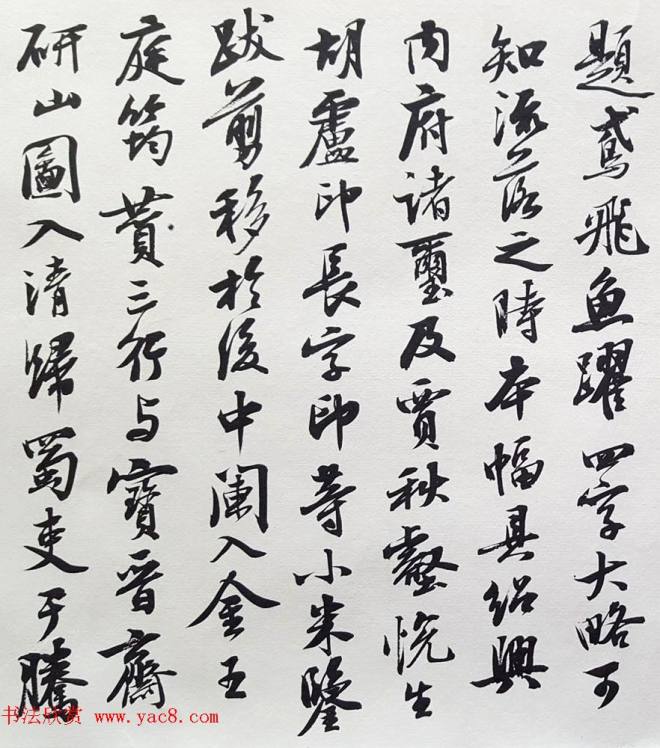 題鳶飛魚躍四字大略可
知流落之時本幅具紹興
內府諸璽及賈秋壑悅生
胡盧印長字印等小米鑒
跋剪移於後中闌入金王
庭筠贊三行与寶晋齋
研山圖入清歸蜀吏于騰
书法欣赏 www.yac8.com